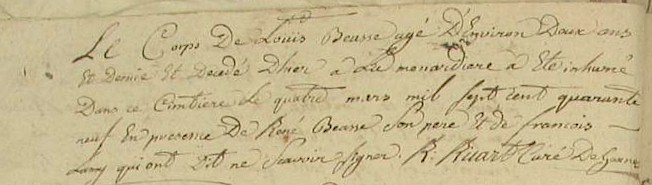 Le Corps De Louis Beasse agé D'Environ Deux ans
Et Demie Et Decedé Dhier à La monardiere à Eté inhumé
Dans ce Cimtiere Le quatre mars mil sept cent quarante
neuf En presence De René Beasse Son pere Et de francois
Lamy qui ont Dit ne Scavoir signer. R: Ruart Curé De